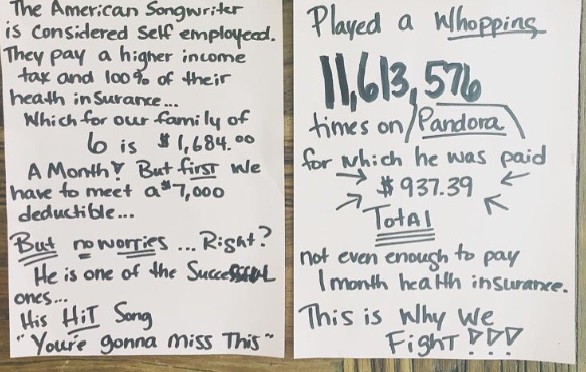 The American Songwriter
is Considered Self employeed.
They pay a higher income
tax and 100% of their
heath insurance...
Which for our family of
6 is $1,684.00
A Month! But first we
have to meet a $7,000
deductible...
But no worries ... Right?
He is one of the Successful
ones...
His HiT Song
"You're gonna miss This"
Played a Whopping
11,613,576
times on Pandora
for which he was paid
$937.39
Total
not even enough to pay
1 month health insurance.
This is Why We
Fight!!!